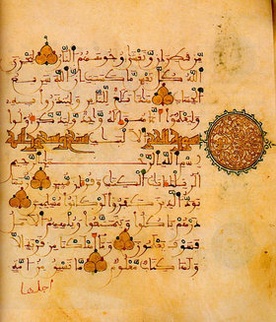 من قطران وتغشى وجوههم النار ليجزي
الله كل نفس ما كسبت ان الله سريع
الحساب هذا بلغ للناس ولينذروا به
اولوا الالبب
بسم الله الرحمن الرحيم
الر تلك ايت الكتب وقران مبين
ربما يود الذين كفروا لو كانوا مسلمين
ذرهم ياكلوا ويتمتعوا ويلههم الامل
فسوف يعلمون وما اهلكنا من قرية الا
ولها كتاب معلوم ما تسبق من امة
اجلها